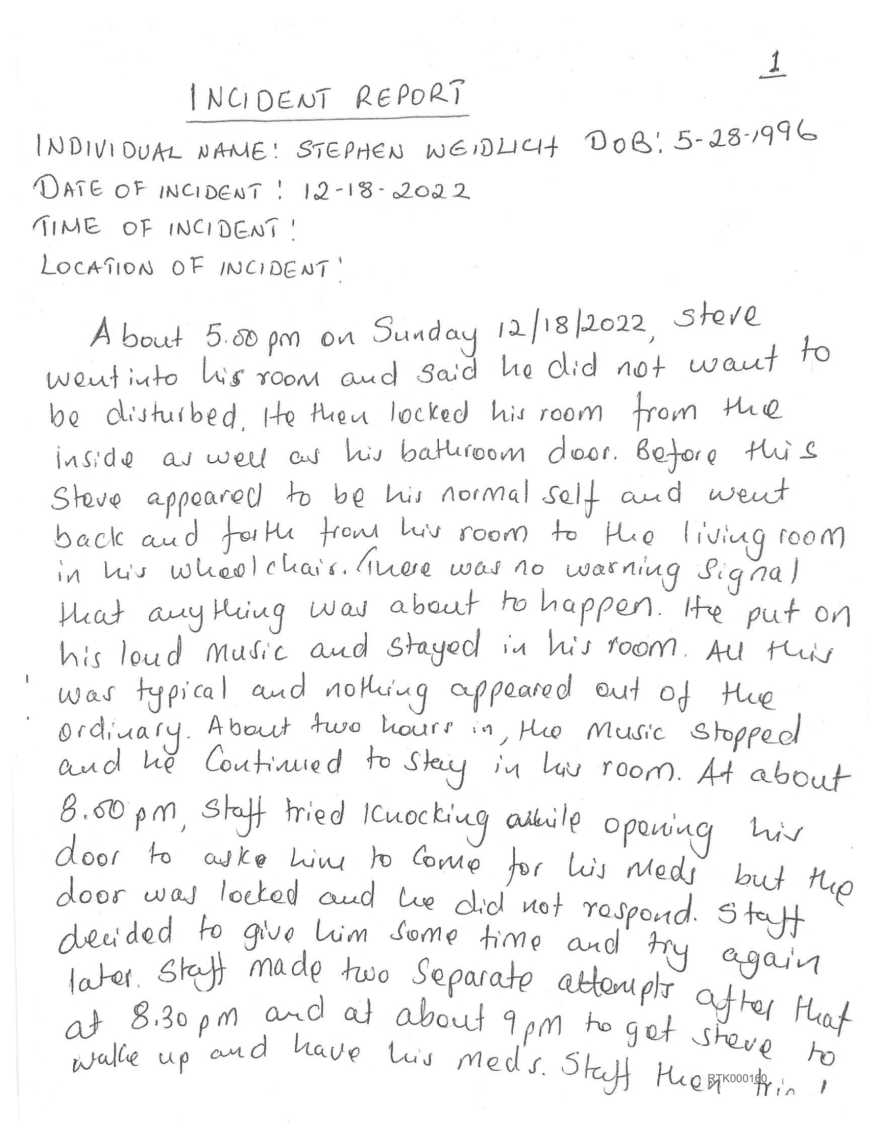 1
INCIDENT REPORT
INDIVIDUAL NAME: STEPHEN WEIDLICH DOB: 5-28-1996
DATE OF INCIDENT: 12-18-2022
TIME OF INCIDENT:
LOCATION OF INCIDENT:
About 5.00 pm on Sunday 12/18/2022, Steve
went into his room and said he did not want to
be disturbed. He then locked his room from the
inside as well as his bathroom door. Before this
Steve appeared to be his normal self and went
back and forth from his room to the living room
in his wheelchair. There was no warning signal
that anything was about to happen. He put on
his loud music and stayed in his room. All this
was typical and nothing appeared out of the
ordinary. About two hours in, the music stopped
and he continued to stay in his room. At about
8.00 pm, Staff tried knocking while opening his
door to aske him to come for his meds but the
door was locked and he did not respond. Staff
decided to give him some time and try again
later. Staff made two separate attempts after that
at 8.30 pm and at about 9 pm to get steve to
wake up and have his meds. Staff then